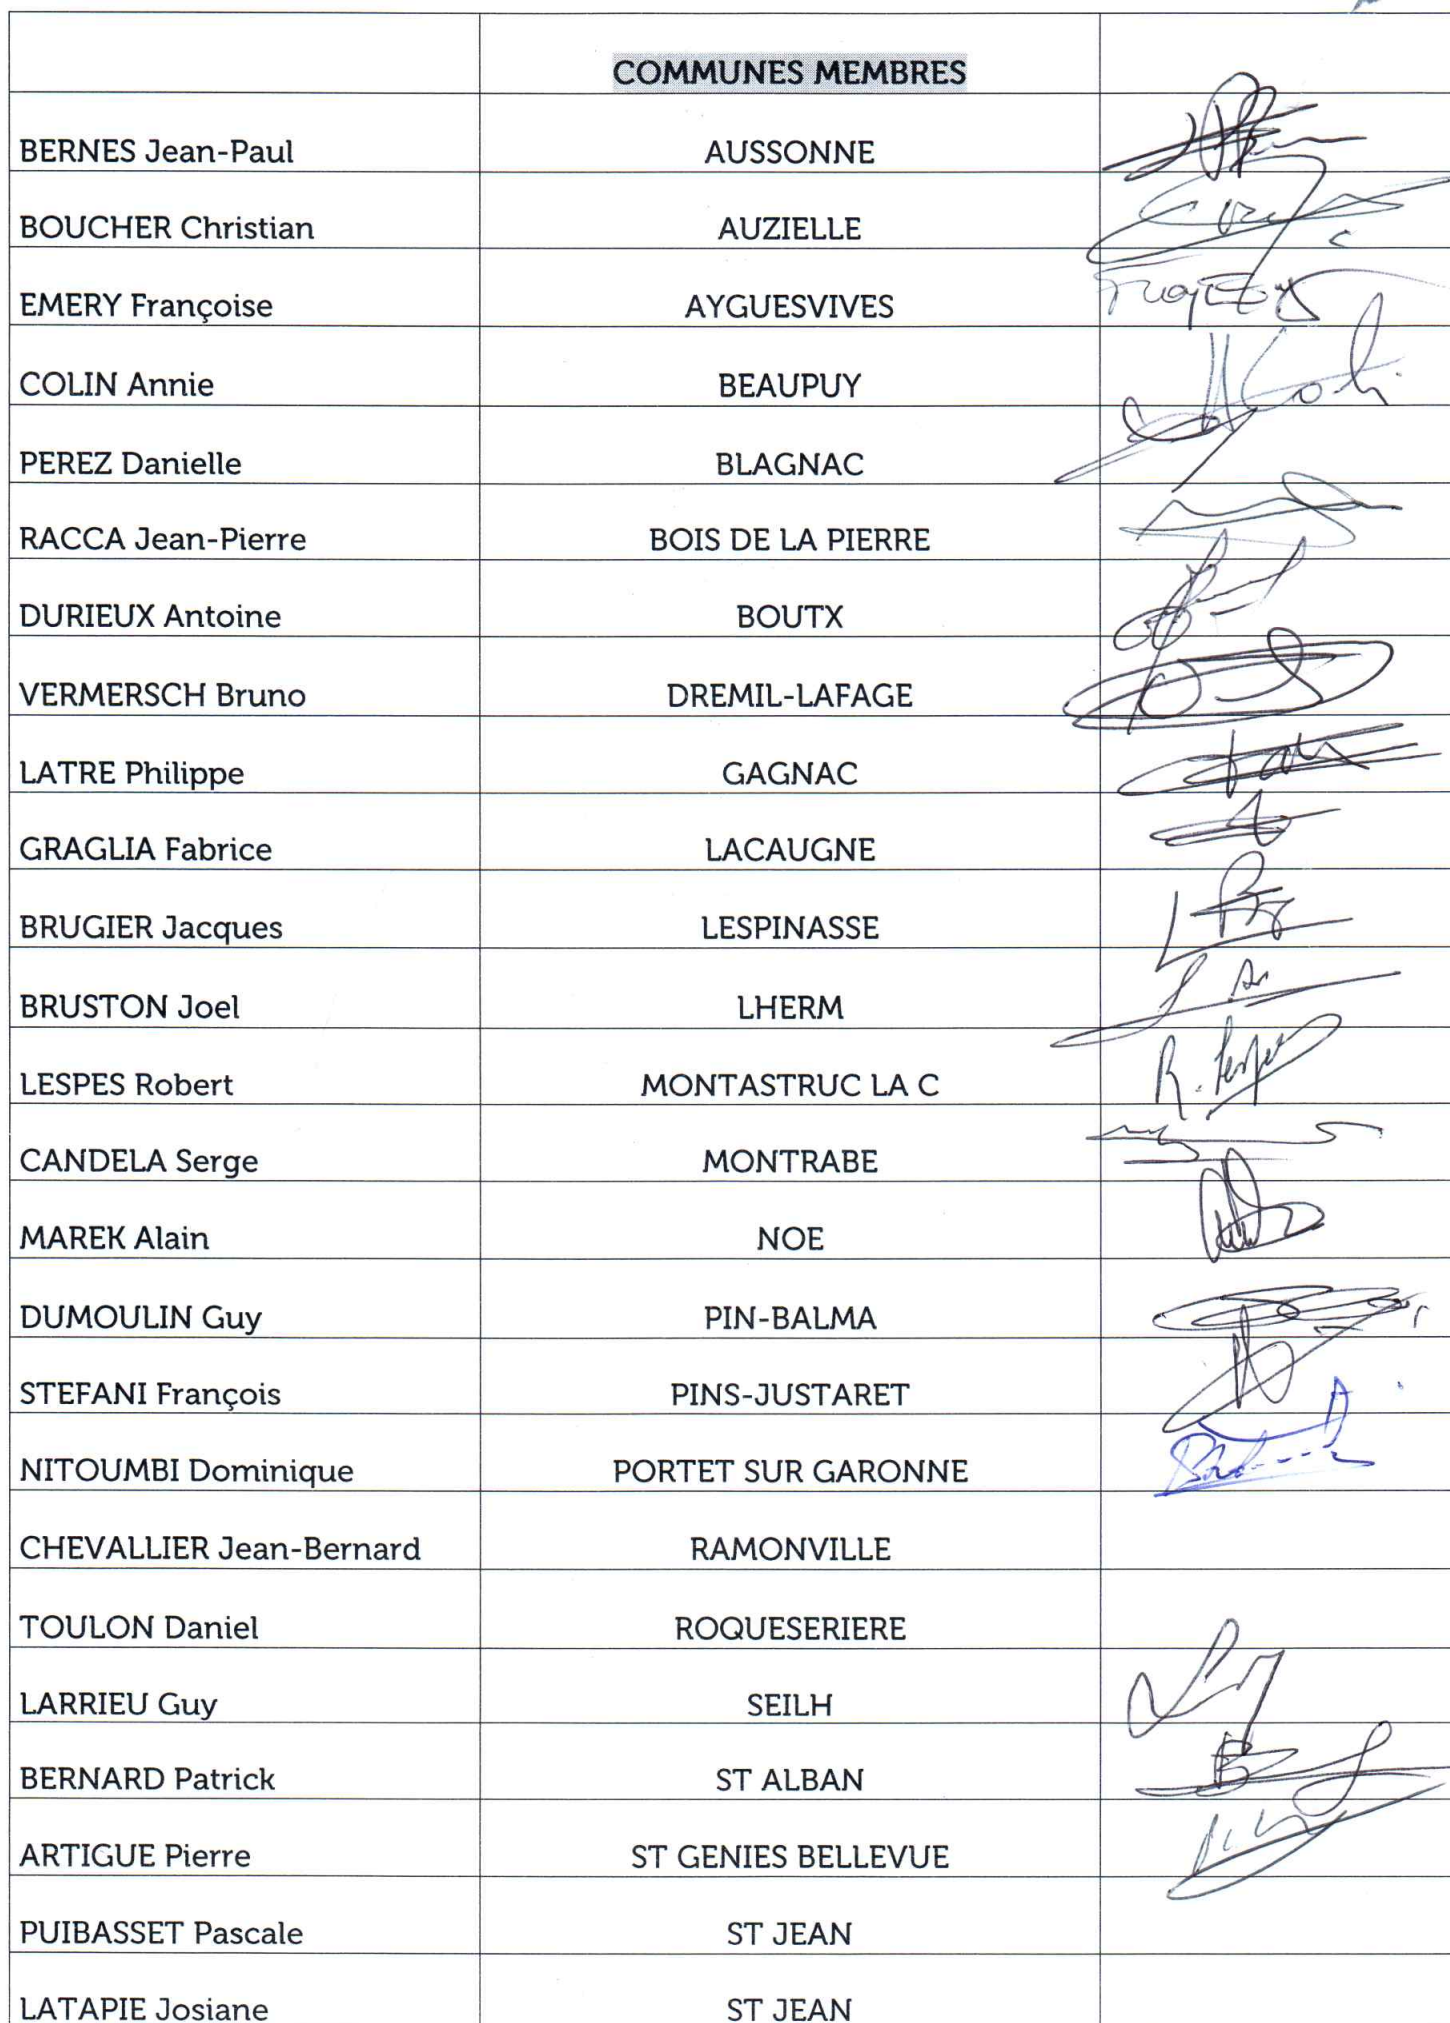 COMMUNES MEMBRES
BERNES Jean-Paul AUSSONNE
BOUCHER Christian AUZIELLE
EMERY Françoise AYGUESVIVES
COLIN Annie BEAUPUY
PEREZ Danielle BLAGNAC
RACCA Jean-Pierre BOIS DE LA PIERRE
DURIEUX Antoine BOUTX
VERMERSCH Bruno DREMIL-LAFAGE
LATRE Philippe GAGNAC
GRAGLIA Fabrice LACAUGNE
BRUGIER Jacques LESPINASSE
BRUSTON Joel LHERM
LESPES Robert MONTASTRUC LA C R. Lespes
CANDELA Serge MONTRABE
MAREK Alain NOE
DUMOULIN Guy PIN-BALMA
STEFANI François PINS-JUSTARET
NITOUMBI Dominique PORTET SUR GARONNE
CHEVALLIER Jean-Bernard RAMONVILLE
TOULON Daniel ROQUESERIERE
LARRIEU Guy SEILH
BERNARD Patrick ST ALBAN
ARTIGUE Pierre ST GENIES BELLEVUE
PUIBASSET Pascale ST JEAN
LATAPIE Josiane ST JEAN